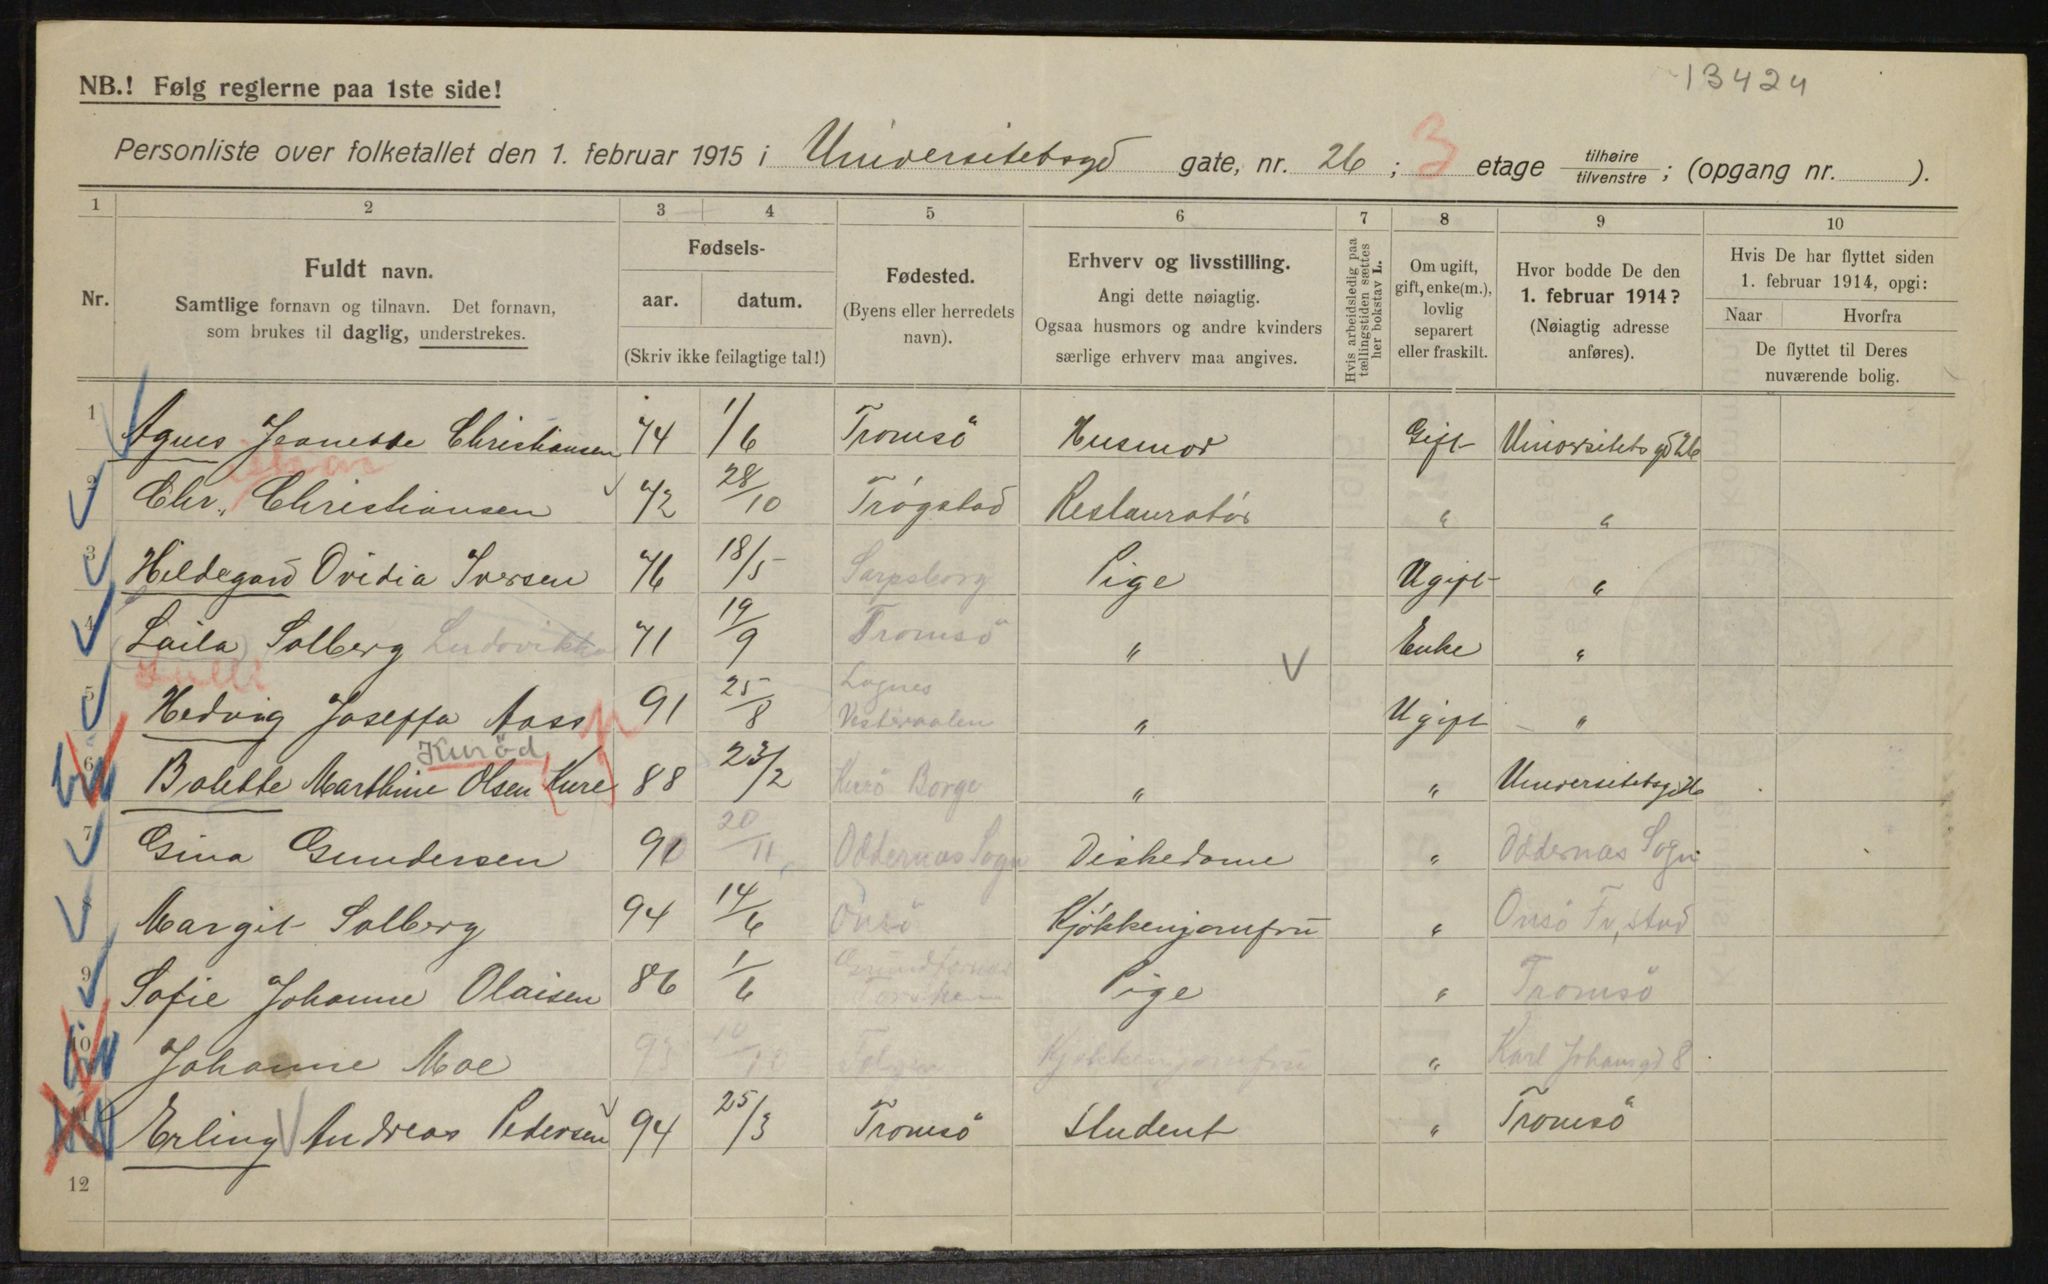 13424
NB.! Følg reglerne paa 1ste side!
Personliste over folketallet den 1. februar 1915 i Universitetsgd gate, nr. 26 ; 3 etage tilhøire / tilvenstre ; (opgang nr. ).
1 2 3 4 5 6 7 8 9 10
Nr.
Fuldt navn.
Samtlige fornavn og tilnavn. Det fornavn,
som brukes til daglig, understrekes.
Fødsels-
aar. datum.
(Skriv ikke feilagtige tal!)
Fødested.
(Byens eller herredets
navn).
Erhverv og livsstilling.
Angi dette nøiagtig.
Ogsaa husmors og andre kvinders
særlige erhverv maa angives.
Hvis arbeidsledig paa
tællingstiden sættes
her bokstav L.
Om ugift,
gift, enke(m.),
lovlig
separert
eller fraskilt.
Hvor bodde De den
1. februar 1914?
(Nøiagtig adresse
anføres).
Hvis De har flyttet siden
1. februar 1914, opgi:
Naar Hvorfra
De flyttet til Deres
nuværende bolig.
1 Agnes Jeanette Christiansen 74 1/6 Tromsö Husmor Gift Universitetsgd 26
2 Chr. Christiansen 72 28/10 Trógstad Restauratör " "
3 Hildegard Ovidia Iversen 76 18/5 Sarpsborg Pige Ugift "
4 (Laila) Solberg Ludovikka 71 19/9 Tromsö " Enke "
Lulli
5 Hedvig Joseffa Aass 91 25/8 Lognes Vesteraalen " Ugift "
Kuröd
6 Bolette Marthine Olsen (Kure) 88 23/2 Kurö Borge " " Universitetsgd 26
7 Gina Gundersen 91 20/11 Oddernæs Sogn Diskedame " Oddernæs Sogn
8 Margit Solberg 94 14/6 Onsö Kjökkenjomfru " Onsö Fr,stad
9 Sofie Johanne Olaisen 86 1/6 Torsken Pige " Tromsö
10 Johanne Moe 93 Kjøkkenjomfru " Karl Johansgd 8
11 Erling Andreas Pedersen 94 25/3 Tromsö Student " Tromsö
12